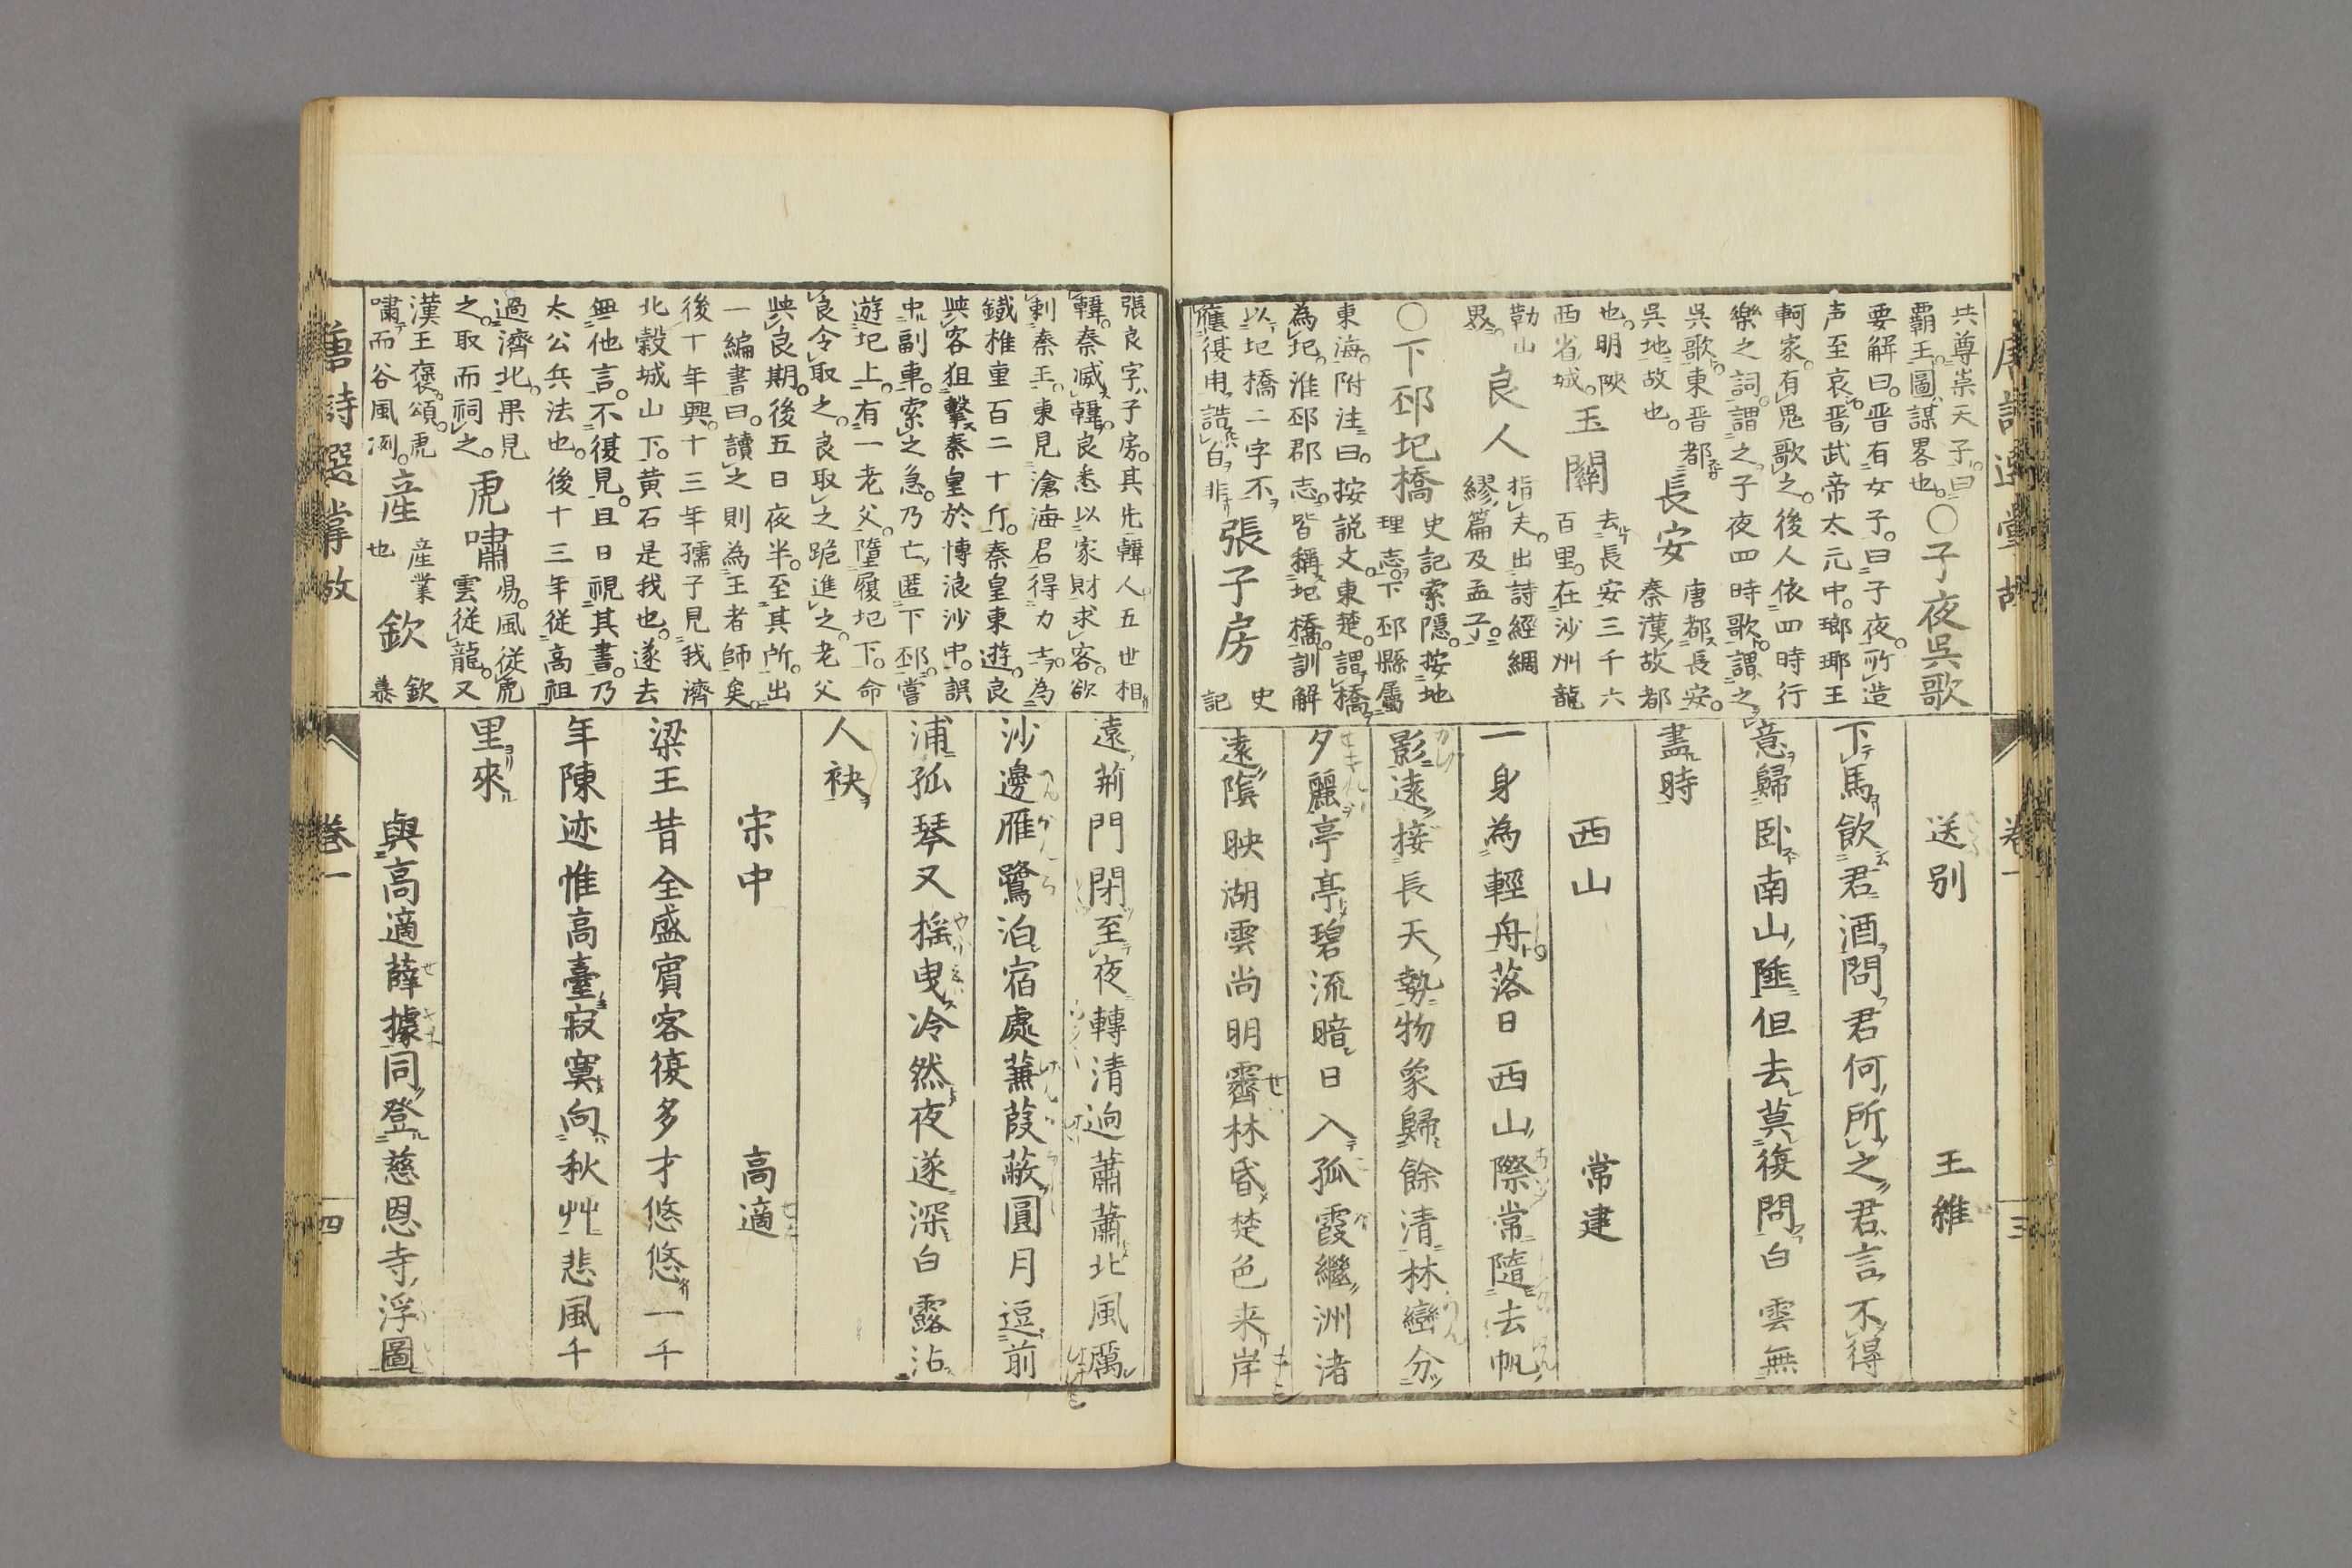 唐詩選掌故
巻一
三
共尊崇天子。曰
覇王。圖謀畧也。
○子夜吳歌
要解曰。晋有女子。曰子夜。所造
声至哀。晋武帝太元中。瑯琊王
軻家。有鬼歌之。後人依四時行
樂之詞。謂之子夜四時歌。謂之
吳歌。東晋都
吳地故也。
長安
唐都長安。
秦漢故都
也。明陝
西省城。
玉關
去長安三千六
百里。在沙州龍
勒山
界。
良人
指夫。出詩經綢
繆篇及孟子。
○下邳圯橋
史記索隠。按地
理志。下邳縣屬
東海。附注曰。按説文。東楚。謂橋
為圯。淮邳郡志。皆稱圯橋。訓解
以圯橋二字不
應復用。誥白非
張子房
史
記
送别
王維
下馬飲君酒問君何所之君言不得
意歸卧南山陲但去莫復問白雲無
盡時
西山
常建
一身為輕舟落日西山際常隨去帆
影遠接長天勢物象歸餘清林巒分
夕麗亭亭碧流暗日入孤霞繼洲渚
遠陰映湖雲尚明霽林昏楚色来岸
張良字子房。其先韓人五世相
韓。秦滅韓。良悉以家財求客。欲
刺秦王。東見滄海君得力士。為
鐵椎重百二十斤。秦皇東遊。良
與客狙擊秦皇於博浪沙中。誤
中副車。索之急。乃亡匿下邳。嘗
遊圯上。有一老父。墮履圯下。命
良令取之。良取之跪進之。老父
與良期。後五日夜半。至其所。出
一編書曰。讀之則為王者師矣。
後十年興。十三年孺子見我濟
北穀城山下。黄石是我也。遂去
無他言。不復見。且日視其書。乃
太公兵法也。後十三年從高祖
過濟北。果見
之。取而祠之。
虎嘯
易。風從虎
雲從龍。又
漢王褒頌。虎
嘯而谷風冽。
産
産業
也
欽
欽
慕
遠荊門閉至夜轉清迥蕭蕭北風厲
沙邊雁鷺泊宿處蒹葭蔽圓月逗前
浦孤琴又搖曳冷然夜遂深白露沾
人袂
宋中
高適
梁王昔全盛賓客復多才悠悠一千
年陳迹惟高臺寂寞向秋艸悲風千
里來
與高適薛據同登慈恩寺浮圖
唐詩選掌故
巻一
四